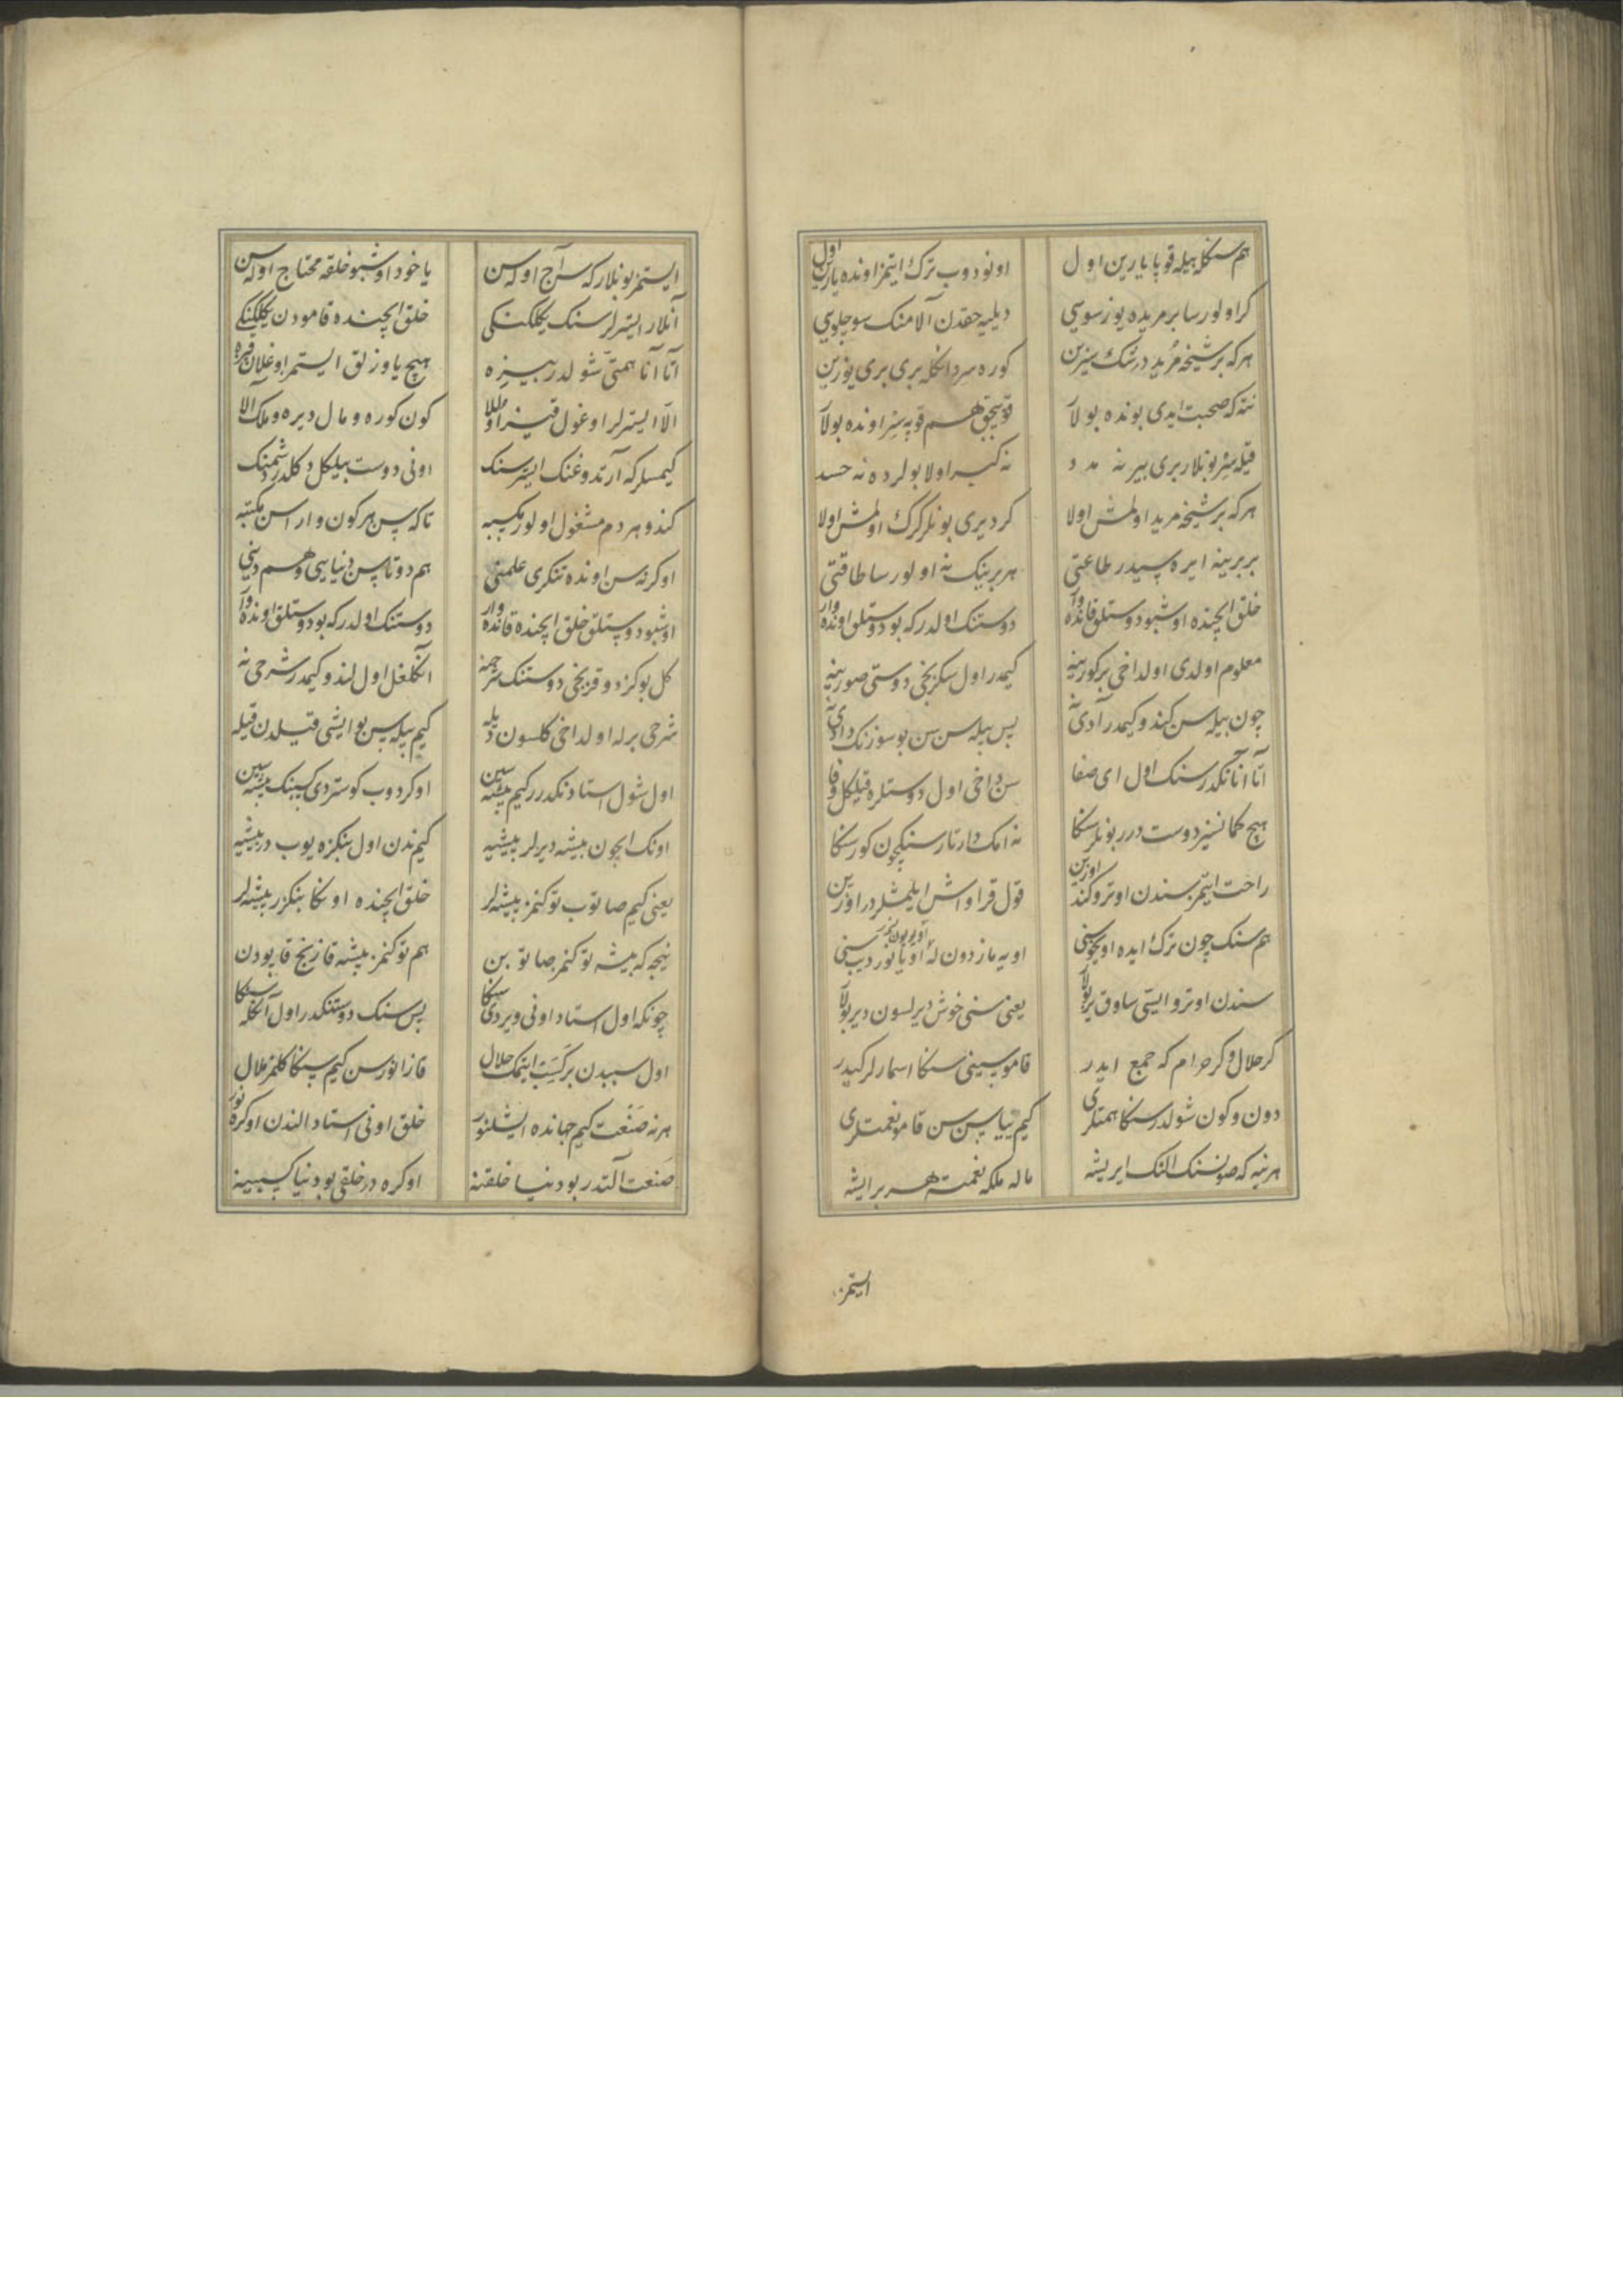 هم سنکله بیله قوپا یارین اول
اونودوب ترک ایتمز اونده یارین اول
کر اولورسا بر مریده یوز سوسی
دیلیه حقدن آلا منک سوچلویی
هرکه بر شیخه مرید در شک سیزین
کوره سر دانکله بری بری یوزین
نته که صحبت ایدی بونده بولا
قوپیجق هم قوپه سز اونده بولا
قیله سز بونلار بری بیرنه مدد
نه کبر اولا بولرده نه حسد
هرکه بر شیخه مرید اولمش اولا
کر دیری بونلر کرک اولمش اولا
بر برینه ایره سیدر طاعتی
هر برینک نه اولورسا طاقتی
خلق ایچنده اوشبو دوستلق قانده وار
دوستنک اولدر که بو دوستلق اونده وار
معلوم اولدی اولداخی بر کورینه
کیمدر اول سکزنجی دوستی صورینه
چون بیله سن کندو کیمدر آدی نه
پس بیله سن سن بو سوزنک دادی نه
اتا آنانکدر سنک اول ای صفا
سن داخی اول دوستلره قیلکل وفا
هیچ کمانسز دوست درر بونلر سنکا
نه امک دارتار سنکچون کور سنکا
راحت ایتمز سندن اوترو کند اوزین
قول قراواش ایلمشلردر اوزین
هم سنک چون ترک ایده اویخوسنی
اویه ماز دون له اویانور دیب سنی
سندن اوترو ایستی ساوق بر بولا
یعنی سنی خوش دیرلسون دیر بولا
کر حلال و کر حرام که جمع ایدر
قاموسینی سنکا اسمارلر کیدر
دون و کون شولدر سنکا همتلری
کیم ییاسن سن قامو نعمتلری
هر نیه که صونسنک الک ایریشه
ماله ملکه نعمته هر بر ایشه
ایستمز
ایستمز بونلار که سن آج اوله سن
یا خود اوشبو خلقه محتاج اوله سن
آنلار ایسترلر سنک یکلکنکی
خلق ایچنده قامودن یکلکنکی
آتا آنا همتی شولدر بیزه
هیچ یاوزلق ایستمز اوغلان قیزه
الا ایسترلر اوغول قیز اوصلولا
کون کوره و مال دیره و ملک آلا
کیمسلر که آرتدوغنک ایستر سنک
اونی دوست بیلکل دکلدر دشمنک
کندو هر دم مشغول اولور مکسبه
تا که سن هر کون واراسن مکتبه
اوکرنه سن اونده تنکری علمنی
هم دوتاسن دنیایی و هم دینی
اوشبو دوستلق خلق ایچنده قانده وار
دوستنک اولدر که بو دوستلق اونده وار
کل بو کز دوقزنجی دوستنک سرحنه
انکلغل اول کندو کیمدر شرحی نه
شرحی برله اولداخی کلسون دیله
کیم بیله سن بو ایشی قیلدن قیله
اول شول استادنکدرر کیم پیشه سین
اوکردوب کوستردی کسبنک پیشه سین
اونک ایچون پیشه دیرلر پیشیه
کیم ندن اول بنکزه یوب در پیشیه
یعنی کیم صاتوب توکنمز پیشه لر
خلق ایچنده اونکا بنکزر پیشه لر
نیجه که پیشه توکنمز صاتوبن
هم توکنمز پیشه قازنج قاپودن
چونکه اول استاد اونی ویردی سنکا
پس سنک دوستنکدر اول آنکله سنکا
اول سببدن بر کسب ایتمک حلال
قازانورسن کیم سنکا کلمز ملال
هر نه صنعت کیم جهانده ایشلنور
خلق اونی استاد الندن اوکرنور
صنعت آلتدر بو دنیا خلقنه
اوکره در خلقی بو دنیا کسبینه